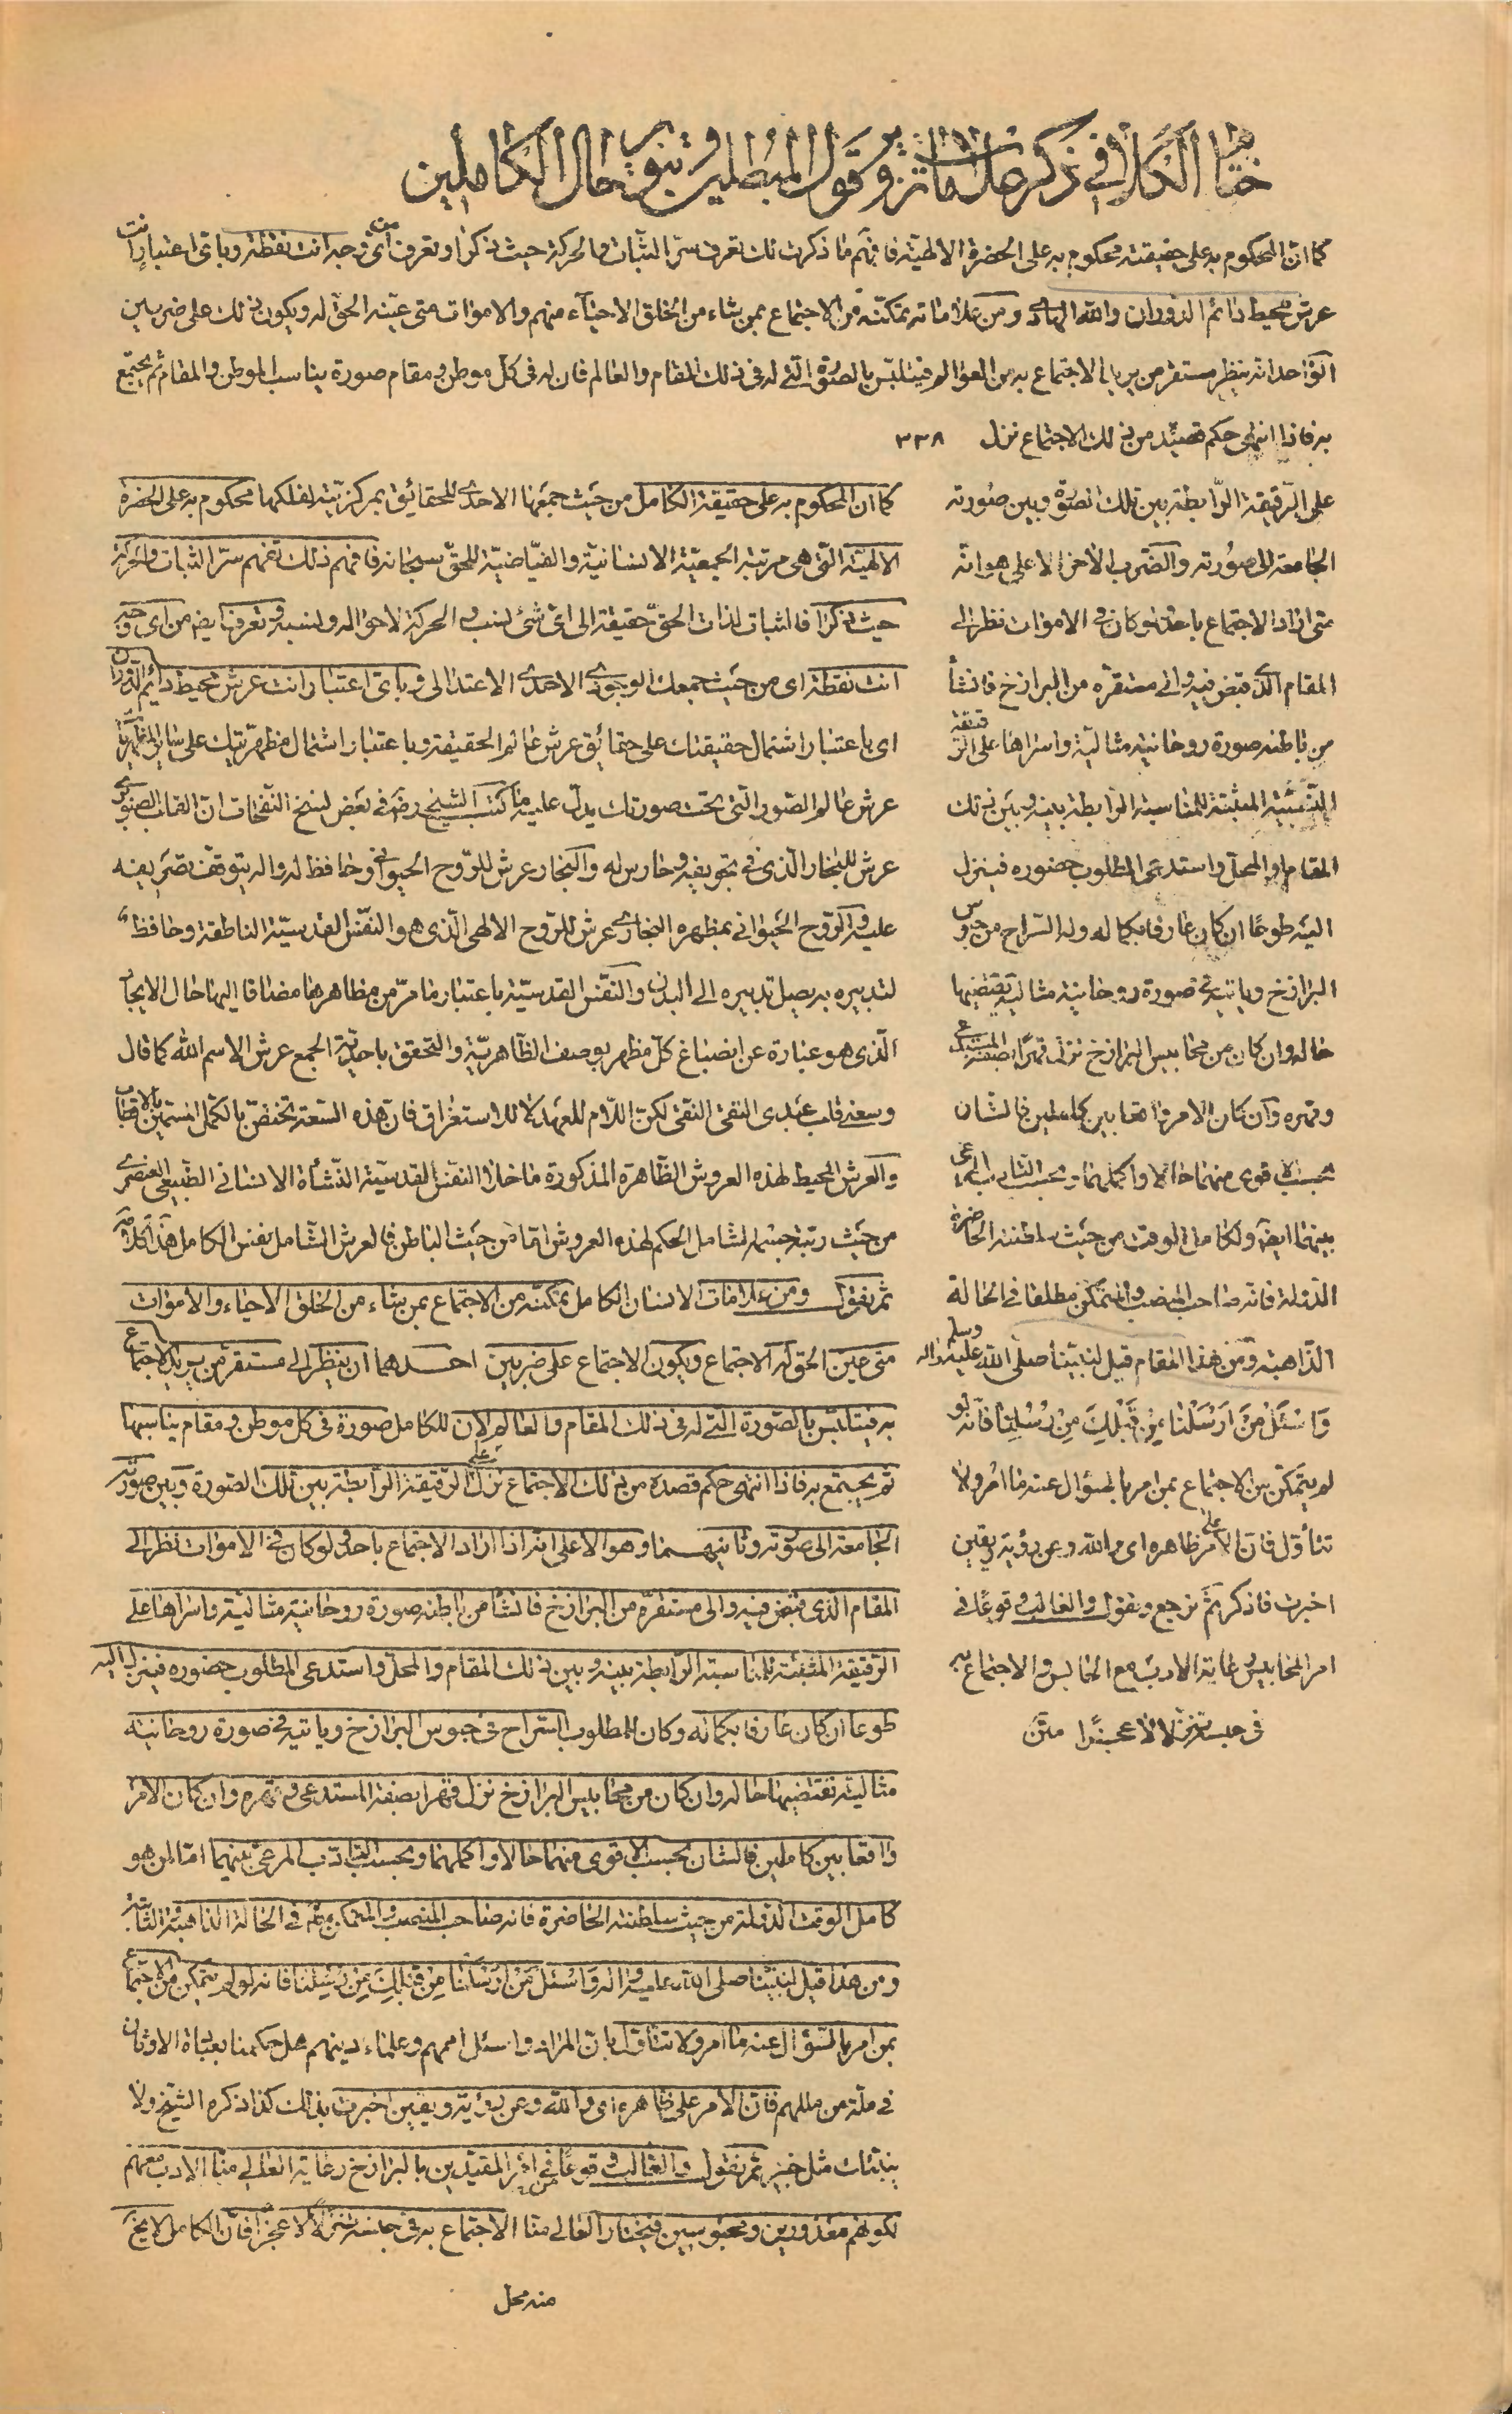 ختام الكلام في ذكر علامات تزو قول المبطلين و تنو حال الكاملين
كما ان المحكوم به على حقيقته محكوم به على الحضرة الالهية فافهم ما ذكرت لك تعرف سر الثبات والحركة حيث ذكرا وتعرف من أي وجه انت نقطة وباي اعتبار انت
عرش محيط دائم الدوران والله الهادي ومن علاماته تمكنه من الاجتماع بمن شاء من الخلق الاحياء منهم والاموات متى عينه الحق له ويكون ذلك على ضربين
الواحد انه ينظر مستقر من يريد الاجتماع به من العوالم فيتلبس بالصورة التي له في ذلك المقام والعالم فان له في كل موطن ومقام صورة يناسب الموطن والمقام ثم يجتمع
به فاذا انتهى حكم قصده من ذلك الاجتماع نزل ٣٣٨
على الرقيقة الرابطة بين تلك الصورة وبين صورته
الجامعة الى صورته والضرب الآخر الاعلى هو انه
متى اراد الاجتماع باحد ولو كان في الاموات نظر الى
المقام الذي قبض فيه والى مستقره من البرازخ فانشأ
من باطنه صورة روحانية مثالية واسراها على الرقيقة
النسبية المثبتة للمناسبة الرابطة بينه وبين ذلك
المقام او المحل واستدعى المطلوب حضوره فينزل
اليه طوعا ان كان عارفا بكماله وله السراح من حبوس
البرازخ وياتيه في صورة روحانية مثالية يقتضيها
حاله وان كان من محابيس البرازخ نزل قهرا بصفة المستدعي
وقهره وان كان الامر واقعا بين كاملين فالشان
بحسب الاقوى منهما حالا واكملهما وبحسب التادب المرعي
بينهما ايضا ولكامل الوقت من حيث سلطنته الحاضرة
الدولة فانه صاحب المنصب والتمكن مطلقا في الحالة
الذاهبة ومن هذا المقام قيل لنبينا صلى الله عليه واله وسلم
وَاسْئَلْ مَنْ اَرْسَلْنا مِنْ قَبْلِكَ مِنْ رُسُلِنا فانه لو
لم يتمكن من الاجتماع بمن امر بالسؤال عنه ما امر ولا
تتأول فان الامر على ظاهره اي والله وعن رؤية ويقين
اخبرت فاذكر ثم نرجع ونقول والغالب وقوعا في
امر المحابيس رعاية الادب مع الحابس والاجتماع به
في حبسه تنزلا لا عجزا متن
كما ان المحكوم به على حقيقة الكامل من حيث جمعها الاحدي للحقائق بمركزيته لفلكها محكوم به على الحضرة
الالهية التي هي مرتبة الجمعية الانسانية والفياضية للحق سبحانه فافهم ذلك تفهم سر الثبات والحركة
حيث ذكرا فالثبات لذات الحق حقيقة الى اي شئ نسب والحركة لاحواله ونسبه وتعرف ايضا من اي وجه
انت نقطة اي من حيث جمعك الوجودي الاحدي الاعتدالي وباي اعتبار انت عرش محيط دائم الدوران
اي باعتبار اشتمال حقيقتك على حقائق عرش عالم الحقيقة وباعتبار اشتمال مظهريتك على سائر المظاهر
عرش عالم الصور التي تحت صورتك يدل عليه ما كتب الشيخ رضه في بعض نسخ النفحات ان القلب الصنوبري
عرش للبخار الذي في تجويفه وحارس له والبخار عرش للروح الحيواني وحافظ له وآلة يتوقف تصريفه
عليه والروح الحيواني بمظهره البخاري عرش للروح الالهي الذي هو النفس القدسية الناطقة وحافظ
لتدبيره به يصل تدبيره الى البدن والنفس القدسية باعتبار ما مر من مظاهرها مضافا اليها حال الايجاد
الذي هو عبارة عن انصباغ كل مظهر بوصف الظاهرية والتحقق باحدية الجمع عرش الاسم الله كما قال
وسعني قلب عبدي التقي النقي لكن اللام للعهد لا للاستغراق فان هذه السعة تختص بالكمل المسمين بالاقطاب
والعرش المحيط لهذه العروش الظاهرة المذكورة ما خلا النفس القدسية النشأة الانساني الطبيعي العنصري
من حيث رتبة جسمه الشامل الحكم لهذه العروش اما من حيث الباطن فالعرش الشامل نفس الكامل هذا كلامه
ثم نقول ومن علامات الانسان الكامل تمكنه من الاجتماع بمن شاء من الخلق الاحياء والاموات
متى عين الحق له الاجتماع ويكون الاجتماع على ضربين احدهما ان ينظر الى مستقر من يريد الاجتماع
به فيتلبس بالصورة التي له في ذلك المقام والعالم لان للكامل صورة في كل موطن ومقام يناسبها
ثم يجتمع به فاذا انتهى حكم قصده من ذلك الاجتماع نزل على الرقيقة الرابطة بين تلك الصورة وبين صورته
الجامعة الى صورته وثانيهما وهو الاعلى انه اذا اراد الاجتماع باحد ولو كان في الاموات نظر الى
المقام الذي قبض فيه والى مستقره من البرازخ فانشأ من باطنه صورة روحانية مثالية واسراها على
الرقيقة المثبتة للمناسبة الرابطة بينه وبين ذلك المقام والمحل واستدعى المطلوب حضوره فينزل اليه
طوعا ان كان عارفا بكماله وكان للمطلوب السراح في حبوس البرازخ وياتيه في صورة روحانية
مثالية تقتضيها حاله وان كان من محابيس البرازخ نزل قهرا بصفة المستدعي وقهره وان كان الامر
واقعا بين كاملين فالشان بحسب الاقوى منهما حالا واكملهما وبحسب التادب المرعي بينهما اما لمن هو
كامل الوقت الدولة من حيث سلطنته الحاضرة فانه صاحب المنصب والمتمكن في الحالة الذاهبة
ومن هذا قيل لنبينا صلى الله عليه واله وَاسْئَلْ مَنْ اَرْسَلْنا مِنْ قَبْلِكَ مِنْ رُسُلِنا فانه لو لم يتمكن من الاجتماع
بمن امر بالسؤال عنه ما امر ولا تتأول بان المراد واسئل اممهم وعلماء دينهم هل حكمنا بعبادة الاوثان
في ملة من مللهم فان الامر على ظاهره اي والله وعن رؤية ويقين اخبرت بذلك كذا ذكره الشيخ ولا
ينبئك مثل خبير ثم نقول والغالب وقوعا في امر المقيدين بالبرازخ رعاية العالي منا الادب معهم
لكونهم معذورين ومحبوسين فيختار العالي منا الاجتماع به في حبسه تنزلا لا عجزا فان الكامل لا يعجز
منه محل